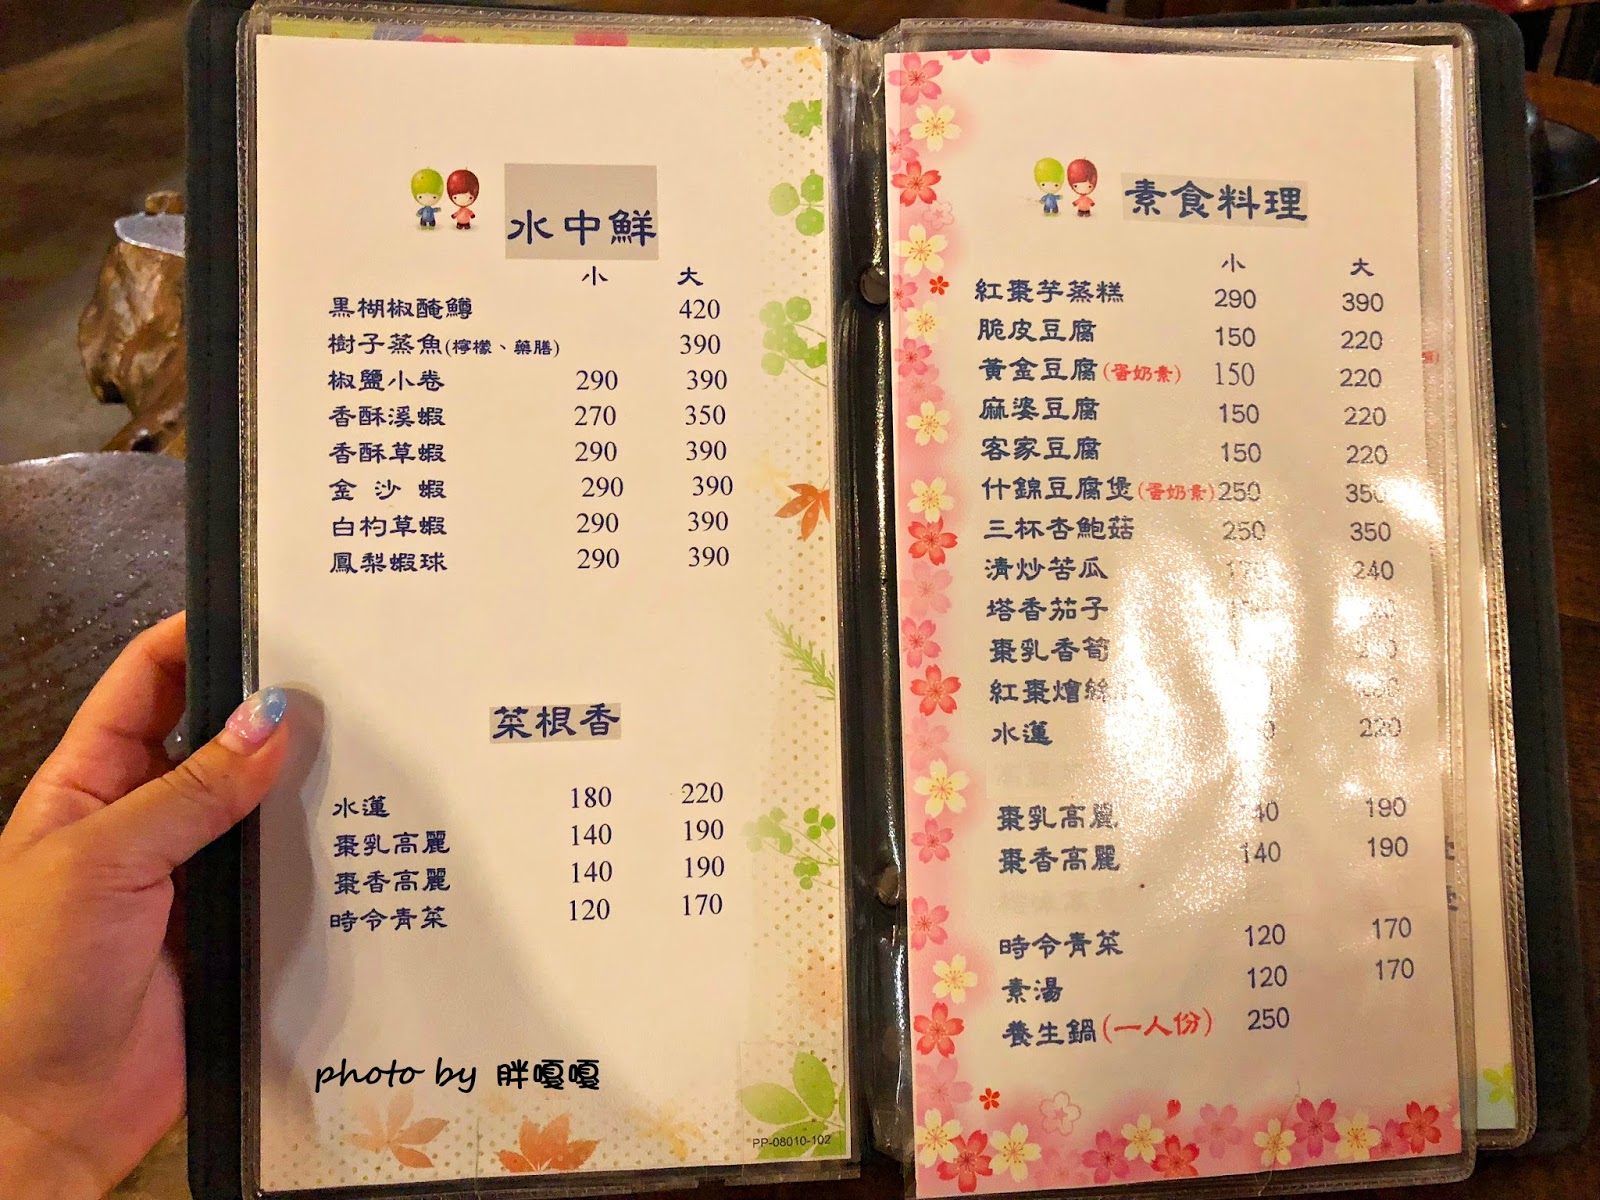 水中鮮
小 大
黑楜椒醃鱒 420
樹子蒸魚(檸檬、藥膳) 390
椒鹽小卷 290 390
香酥溪蝦 270 350
香酥草蝦 290 390
金沙蝦 290 390
白杓草蝦 290 390
鳳梨蝦球 290 390
菜根香
水蓮 180 220
棗乳高麗 140 190
棗香高麗 140 190
時令青菜 120 170
photo by 胖嘎嘎
PP-08010-102
素食料理
小 大
紅棗芋蒸糕 290 390
脆皮豆腐 150 220
黃金豆腐(蛋奶素) 150 220
麻婆豆腐 150 220
客家豆腐 150 220
什錦豆腐煲(蛋奶素) 250 350
三杯杏鮑菇 250 350
清炒苦瓜 240
塔香茄子
棗乳香筍
紅棗燴絲
水蓮 220
棗乳高麗 140 190
棗香高麗 140 190
時令青菜 120 170
素湯 120 170
養生鍋(一人份) 250